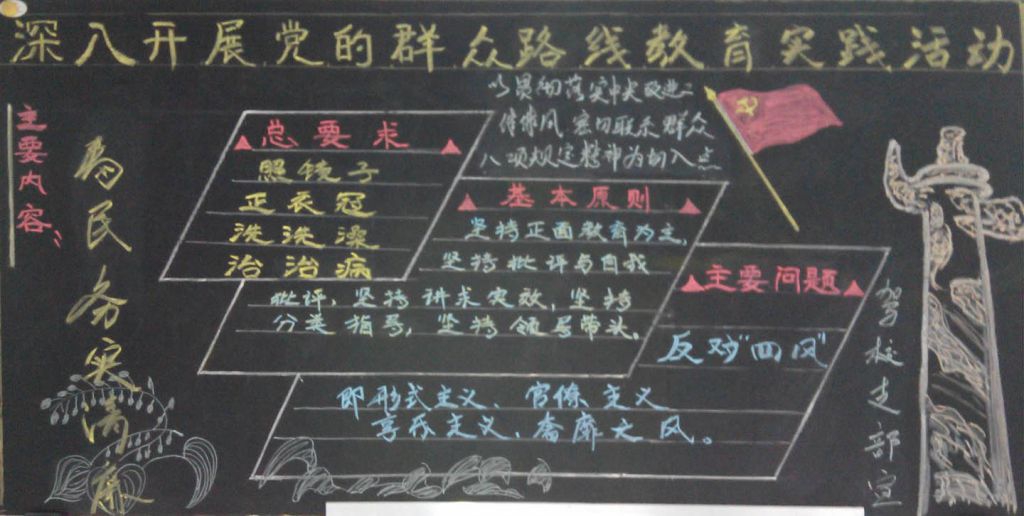 深入开展党的群众路线教育实践活动
主要内容：
为民务实清廉
以贯彻落实中央改进
作风密切联系群众
八项规定精神为切入点
▲总要求▲
照镜子
正衣冠
洗洗澡
治治病
▲基本原则▲
坚持正面教育为主，
坚持批评与自我
批评，坚持讲求实效，坚持
分类指导，坚持领导带头。
▲主要问题▲
反对“四风”
即形式主义、官僚主义
享乐主义、奢靡之风。
驾校支部宣